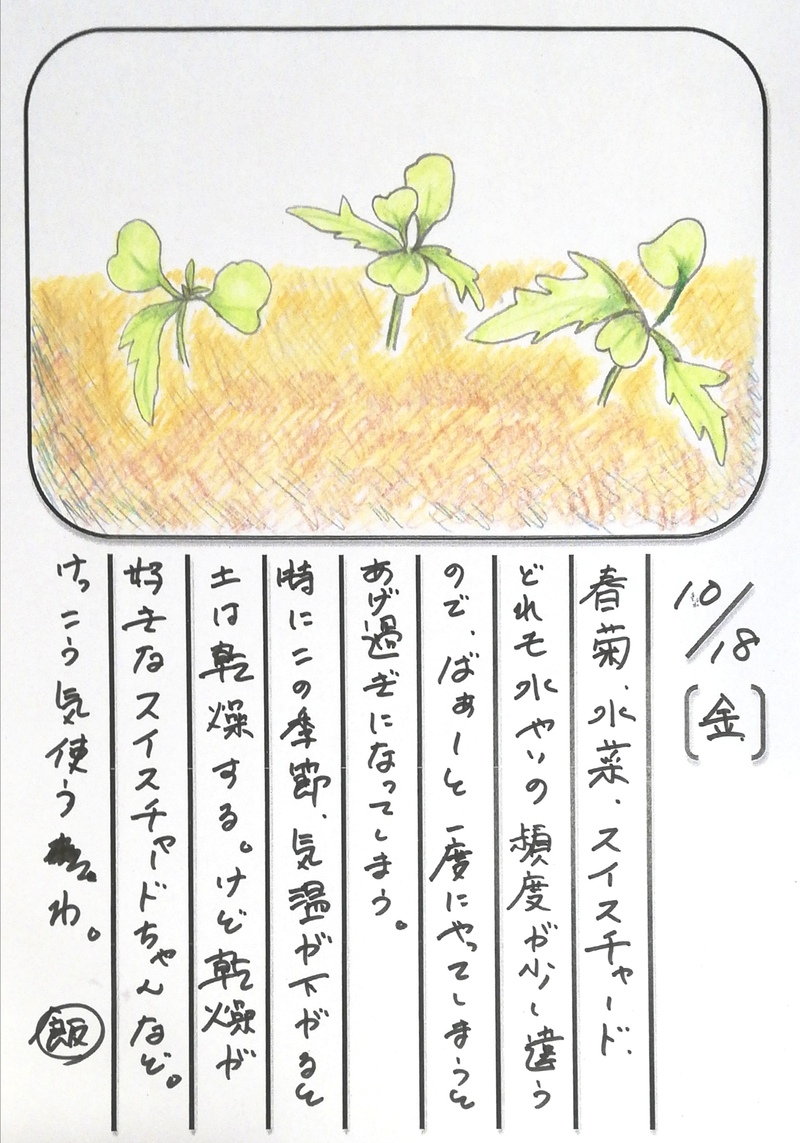 10/18
(金)
春菊、水菜、スイスチャード、
どれも水やりの頻度が少し違う
ので、ばぁーと一度にやってしまうと
あげ過ぎになってしまう。
時にこの季節、気温が下がると
土は乾燥する。けど乾燥が
好きなスイスチャードちゃんなぞ。
けっこう気使うわ。
飯